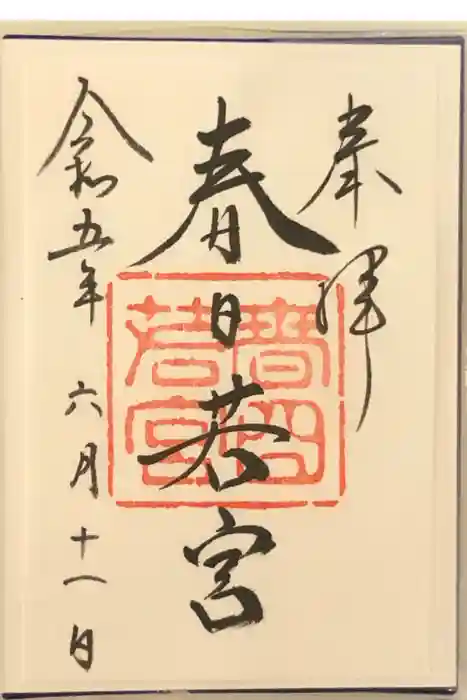 奉拝
春日若宮
春日
若宮
令和五年 六月十八日